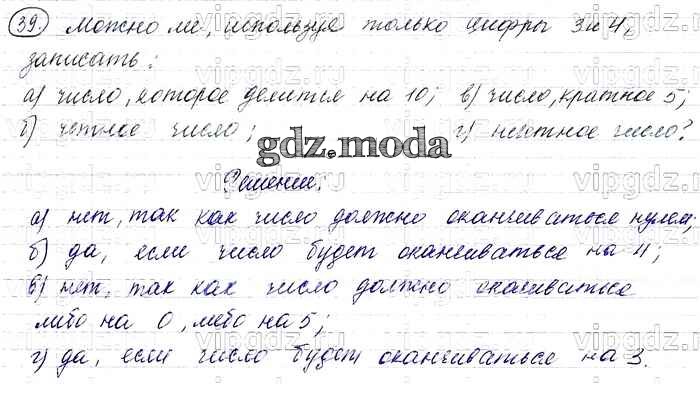 39. Можно ли, используя только цифры 3 и 4,
записать:
а) число, которое делится на 10; в) число, кратное 5;
б) четное число; г) нечетное число?
gdz.moda
Решение:
а) нет, так как число должно оканчиваться нулем;
б) да, если число будет оканчиваться на 4;
в) нет, так как число должно оканчиваться
либо на 0, либо на 5;
г) да, если число будет оканчиваться на 3.